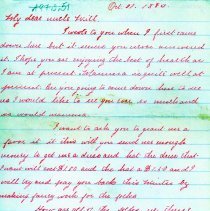 Oct. 27. 1884.
My dear uncle Will.
I wrote to you when I first came
down here but it seems you never answered
it. I hope you are enjoying the best of health as
I am at present. Mamma is quite well at
present. Are you going to come down here to see
us I would like to see you ever so much and
so would mamma.
I want to ask you to grant me a
favor it is this will you send me enough
money to get me a dress and hat the dress that
I want will cost $2.00 and the hat a $1.50 and I
will try and pay you back this winter by
making fancy work for the folks.
How are all the folks up there